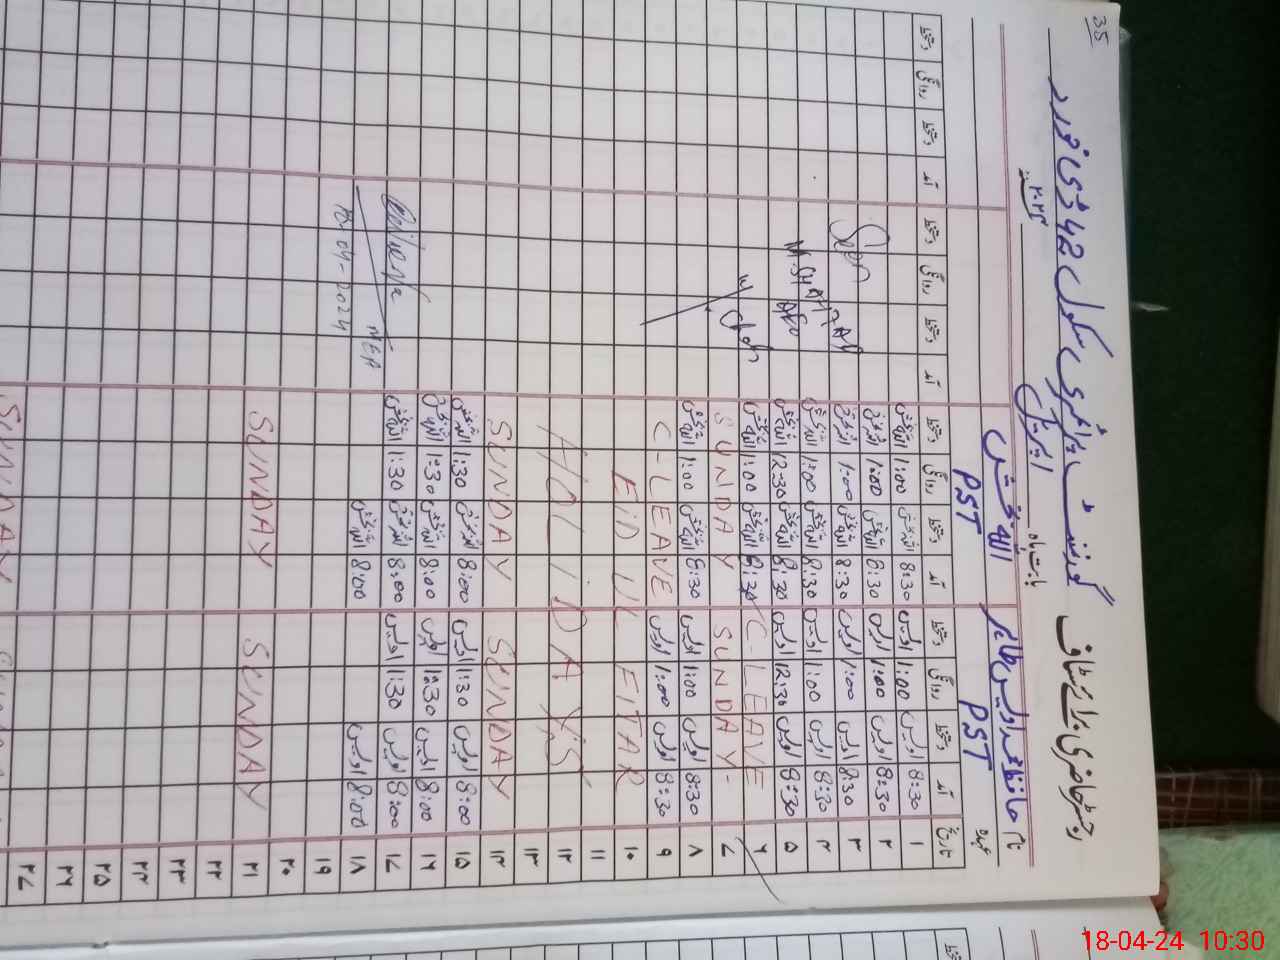 35
رجسٹر حاضری برائے سٹاف گورنمنٹ پرائمری سکول
بابت ماہ اپریل ۲۰۲۴
نام حافظ محمد اویس طاہر اللہ بخش
عہدہ PST PST
تاریخ آمد دستخط روانگی دستخط آمد دستخط روانگی دستخط آمد دستخط روانگی دستخط آمد دستخط روانگی دستخط
۱ 8:30 اویس 1:00 اویس 8:30 اللہ بخش 1:00 اللہ بخش
۲ 8:30 اویس 1:00 اویس 8:30 اللہ بخش 1:00 اللہ بخش
۳ 8:30 اویس 1:00 اویس 8:30 اللہ بخش 1:00 اللہ بخش
۴ 8:30 اویس 1:00 اویس 8:30 اللہ بخش 1:00 اللہ بخش
۵ 8:30 اویس 12:30 اویس 8:30 اللہ بخش 12:30 اللہ بخش
۶ C-LEAVE 8:30 اللہ بخش 1:00 اللہ بخش
۷ SUNDAY SUNDAY
۸ 8:30 اویس 1:00 اویس 8:30 اللہ بخش 1:00 اللہ بخش
۹ 8:30 اویس 1:00 اویس C-LEAVE
۱۰ EID UL FITAR
۱۱
۱۲ HOLIDAYS
۱۳
۱۴ SUNDAY SUNDAY
۱۵ 8:00 اویس 1:30 اویس 8:00 اللہ بخش 1:30 اللہ بخش
۱۶ 8:00 اویس 1:30 اویس 8:00 اللہ بخش 1:30 اللہ بخش
۱۷ 8:00 اویس 1:30 اویس 8:00 اللہ بخش 1:30 اللہ بخش
MEA
۱۸ 8:00 اویس 8:00 اللہ بخش
۱۹
۲۰
۲۱ SUNDAY SUNDAY
۲۲
۲۳
۲۴
۲۵
۲۶
۲۷
SUNDAY
18-04-24 10:30